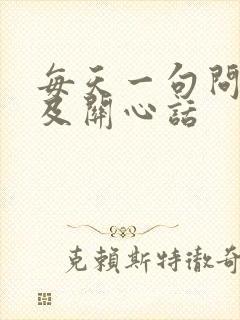 每天一句問
及關心話
克賴斯特徹奇